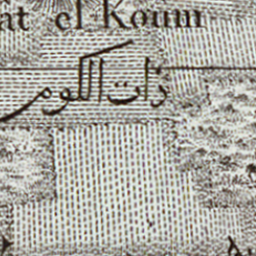 ât el-Koum
ذات الكوم